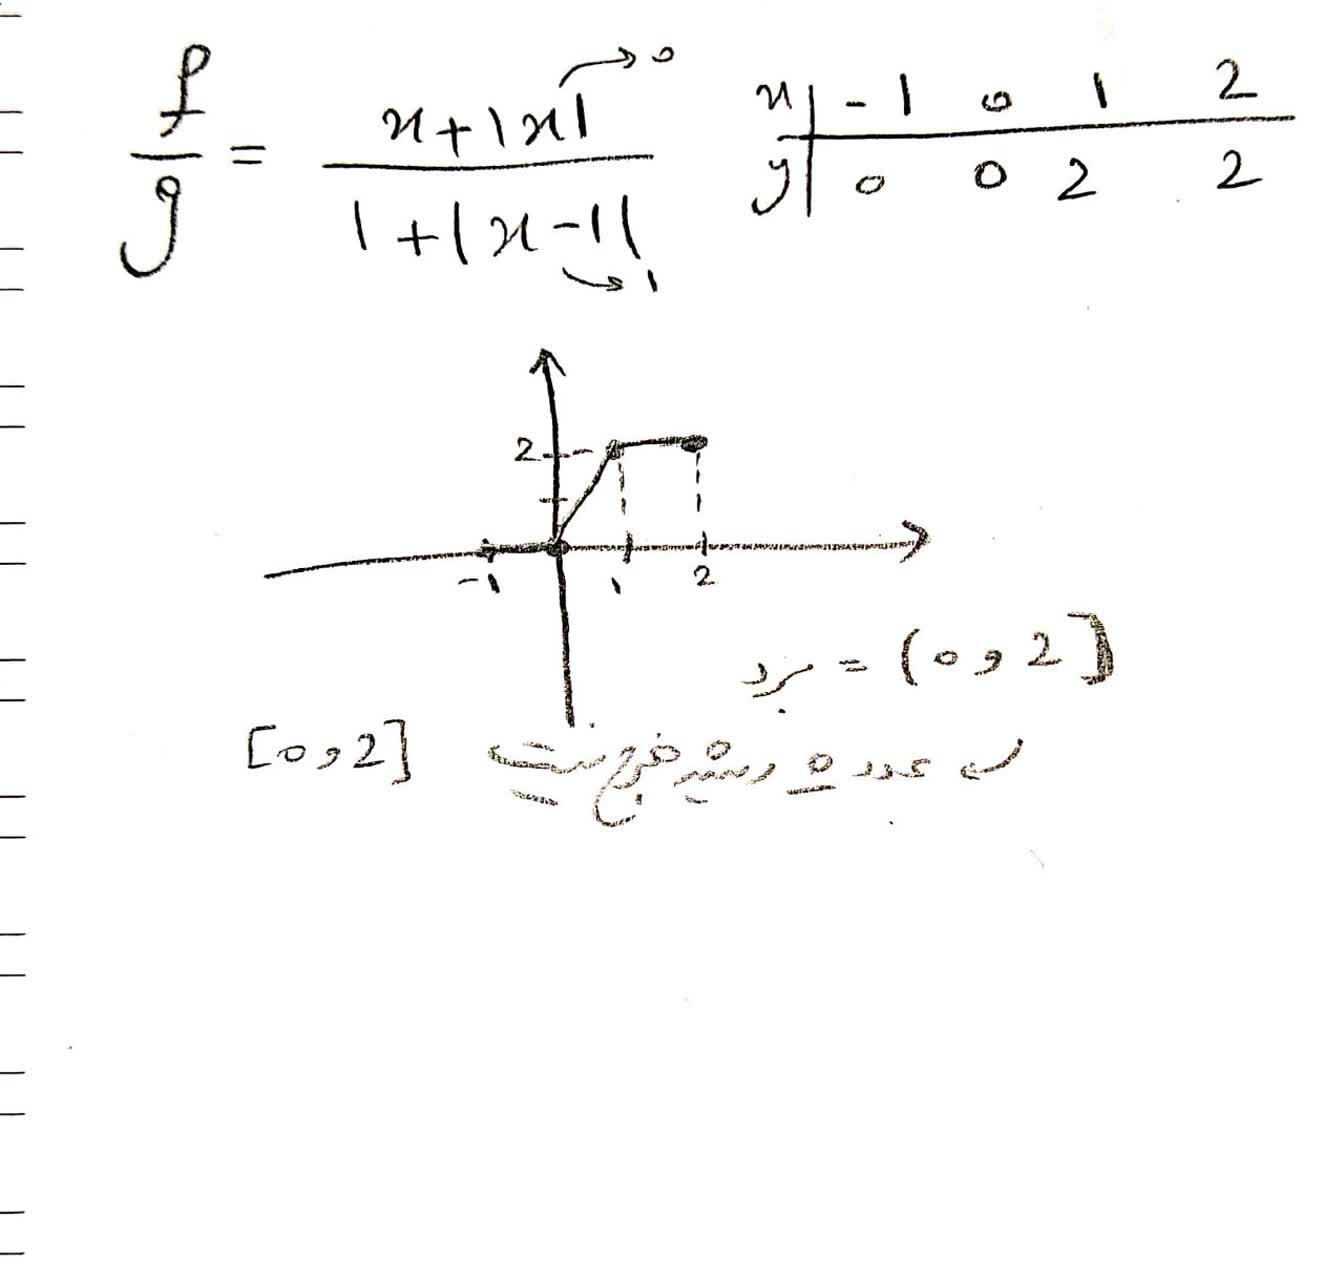 f/g = x+|x| / 1+|x-1|
→ 0
→ 1
x | -1 0 1 2
y | 0 0 2 2
2
-1 1 2
برد = (0 , 2]
عدد 0 ریشه مخرج نیست [0 , 2]